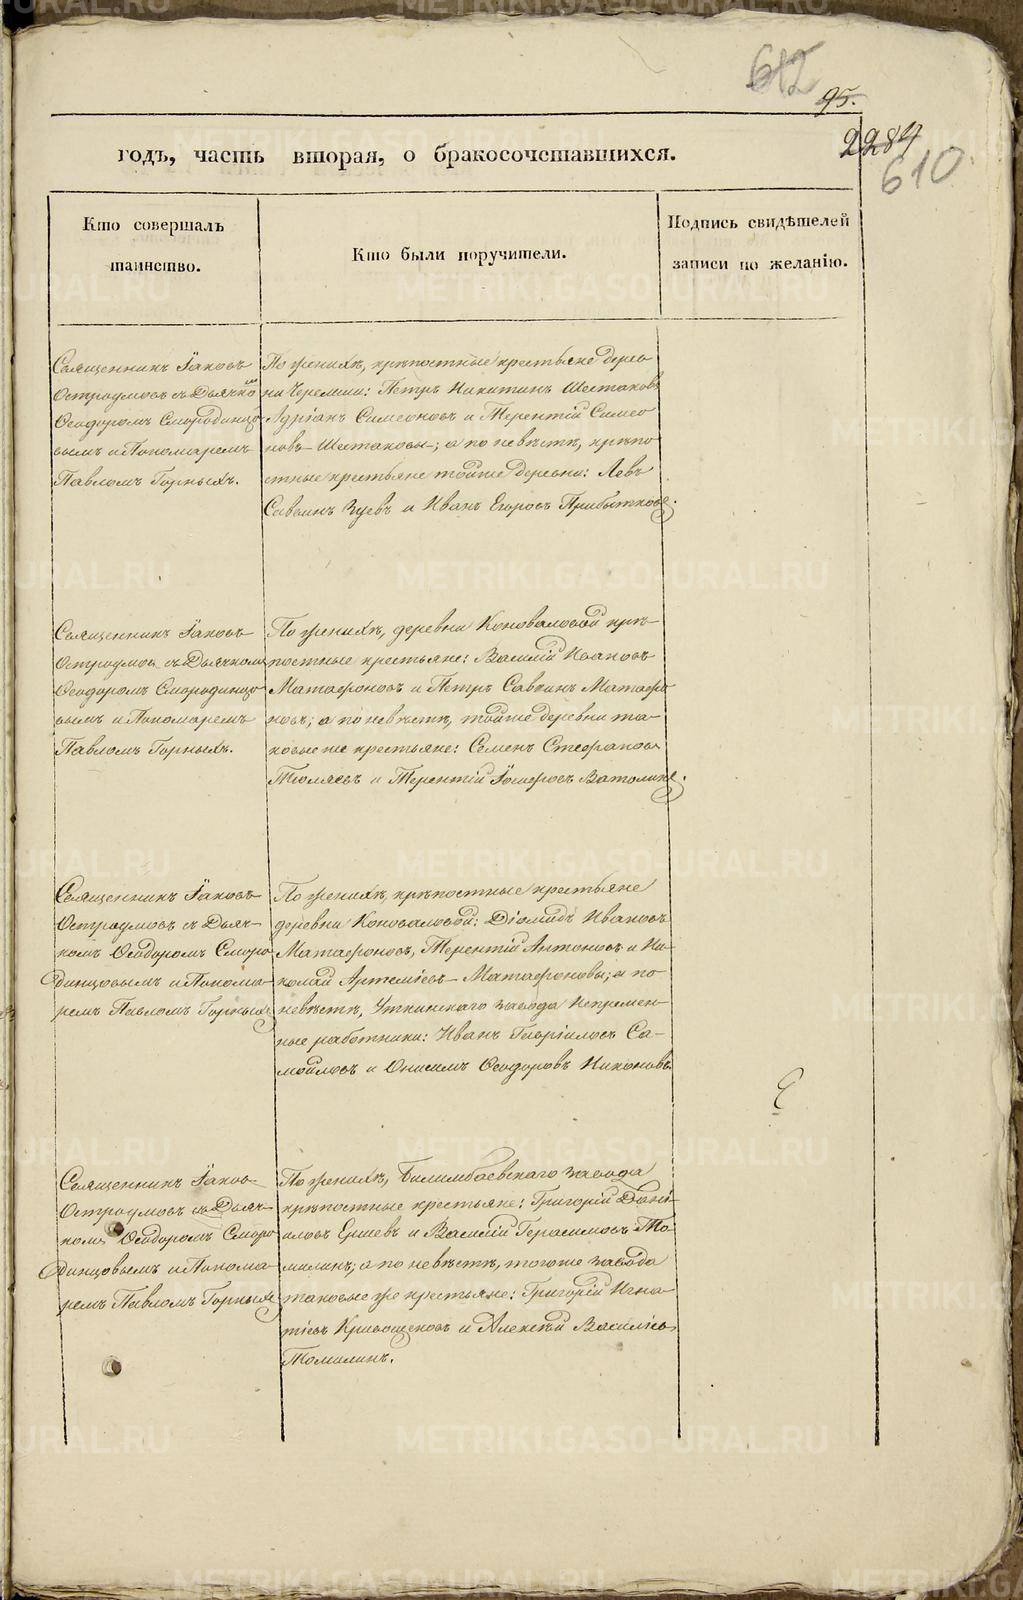 612
95.
2284
610
годъ, часть вторая, о бракосочетавшихся.
Кто совершалъ таинство.
Кто были поручители.
Подпись свидѣтелей записи по желанію.
Священникъ Іаковъ
Остроумовъ съ Дьячкомъ
Ѳеодоромъ Смородинцо
вымъ и Пономаремъ
Павломъ Горныхъ.
По женихѣ, крѣпостные крестьяне дерев
ни Черемши: Петръ Никитинъ Шестаковъ
Адріанъ Симеоновъ и Терентій Симео
новъ Шестаковы; а по невѣстѣ, крѣпо
стные крестьяне тойже деревни: Левъ
Саввинъ Зуевъ и Иванъ Егоровъ Прибытковъ.
Священникъ Іаковъ
Остроумовъ съ Дьячкомъ
Ѳеодоромъ Смородинцо
вымъ и Пономаремъ
Павломъ Горныхъ.
По женихѣ, деревни Коноваловой крѣ-
постные крестьяне: Василій Ивановъ
Матафоновъ и Петръ Саввинъ Матафо
новъ; а по невѣстѣ, тойже деревни та-
ковые же крестьяне: Семенъ Стефановъ
Тюляевъ и Терентій Іосифовъ Ватолинъ.
Священникъ Іаковъ
Остроумовъ съ Дьяч-
комъ Ѳеодоромъ Сморо
динцовымъ и Понома-
ремъ Павломъ Горныхъ
По женихѣ, крѣпостные крестьяне
деревни Коноваловой: Діомидъ Ивановъ
Матафоновъ, Терентій Антоновъ и Ни-
колай Артеміевъ Матафоновы; а по
невѣстѣ, Уткинскаго завода Непремен-
ные работники: Иванъ Гавріиловъ Са-
мойловъ и Онисимъ Ѳеодоровъ Никоновъ.
Священникъ Іаковъ
Остроумовъ съ Дьяч-
комъ Ѳеодоромъ Сморо
динцовымъ и Понома-
ремъ Павломъ Горныхъ
По женихѣ, Билимбаевскаго завода
крѣпостные крестьяне: Григорій Дані-
иловъ Ершевъ и Василій Герасимовъ То
милинъ; а по невѣстѣ, тогоже завода
таковые же крестьяне: Григорій Игна-
тіевъ Кривощековъ и Алексѣй Василіевъ
Томилинъ.